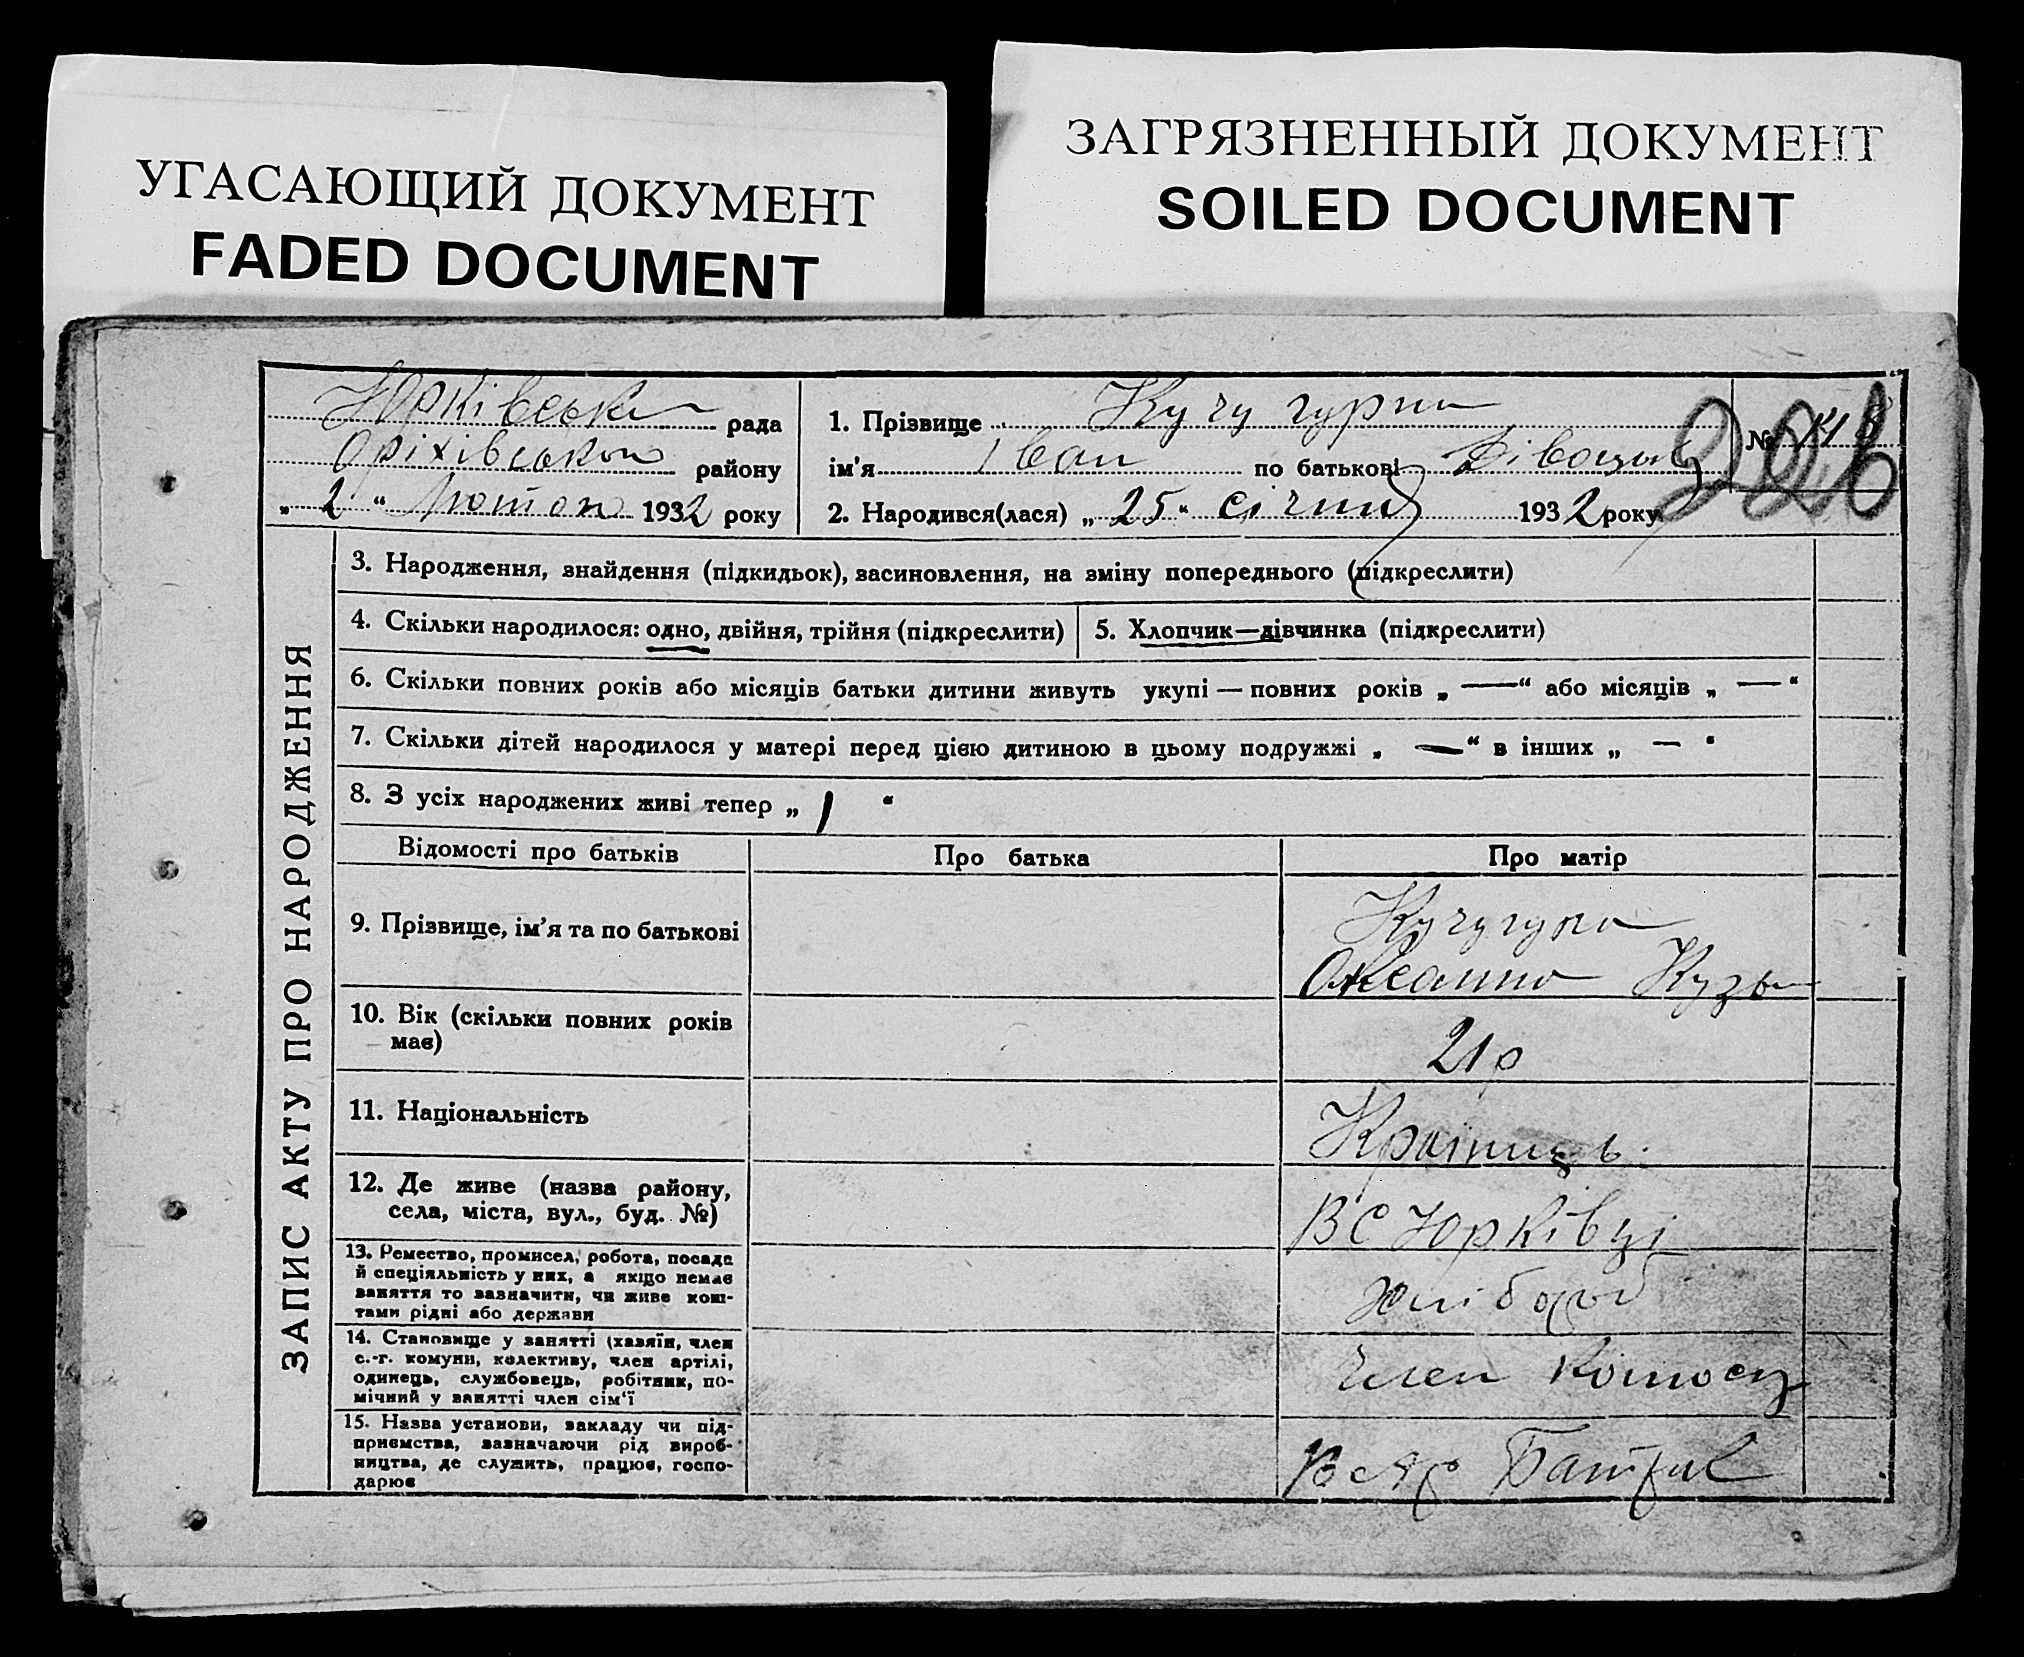 УГАСАЮЩИЙ ДОКУМЕНТ
FADED DOCUMENT
ЗАГРЯЗНЕННЫЙ ДОКУМЕНТ
SOILED DOCUMENT
Юрківська рада
Оріхівского району
„ 2 “ Лютого 1932 року
1. Прізвище Кучугурна
ім'я Іван по батькові
2. Народився(лася) „ 25 “ січня 1932 року
№
226
ЗАПИС АКТУ ПРО НАРОДЖЕННЯ
3. Народження, знайдення (підкидьок), засиновлення, на зміну попереднього (підкреслити)
4. Скільки народилося: одно, двійня, трійня (підкреслити)
5. Хлопчик—дівчинка (підкреслити)
6. Скільки повних років або місяців батьки дитини живуть укупі — повних років „ — “ або місяців „ — “
7. Скільки дітей народилося у матері перед цією дитиною в цьому подружжі „ — “ в інших „ — “
8. З усіх народжених живі тепер „ 1 “
Відомості про батьків
Про батька
Про матір
9. Прізвище, ім'я та по батькові
Кучугурна
Оксанна Кузь
10. Вік (скільки повних років
має)
21 р
11. Національність
Країнець.
12. Де живе (назва району,
села, міста, вул., буд. №)
В С Юрківці
13. Ремество, промисел, робота, посада
й спеціяльність у них, а якщо немає
заняття то зазначити, чи живе кош-
тами рідні або держави
Хлібороб
14. Становище у занятті (хазяїн, член
с.-г. комуни, колективу, член артілі,
одинець, службовець, робітник, по-
мічний у занятті член сім'ї
Член
15. Назва установи, закладу чи під-
приємства, зазначаючи рід вироб-
ництва, де служить, працює, госпо-
дарює